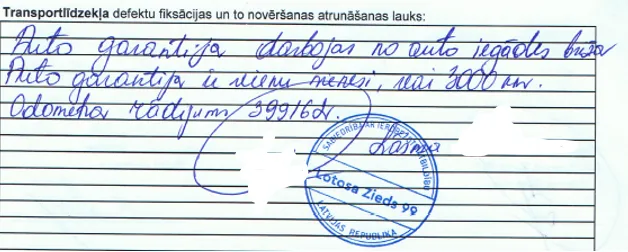 Transportlīdzekļa defektu fiksācijas un to novēršanas atrunāšanas lauks:
Auto garantija darbojas no auto iegādes brīža
Auto garantija ir vienu mēnesi, vai 3000 km.
Odometra rādijums 39916
SABIEDRĪBA AR IEROBEŽOTU ATBILDĪBU
Lotosa Zieds 99
LATVIJAS REPUBLIKA